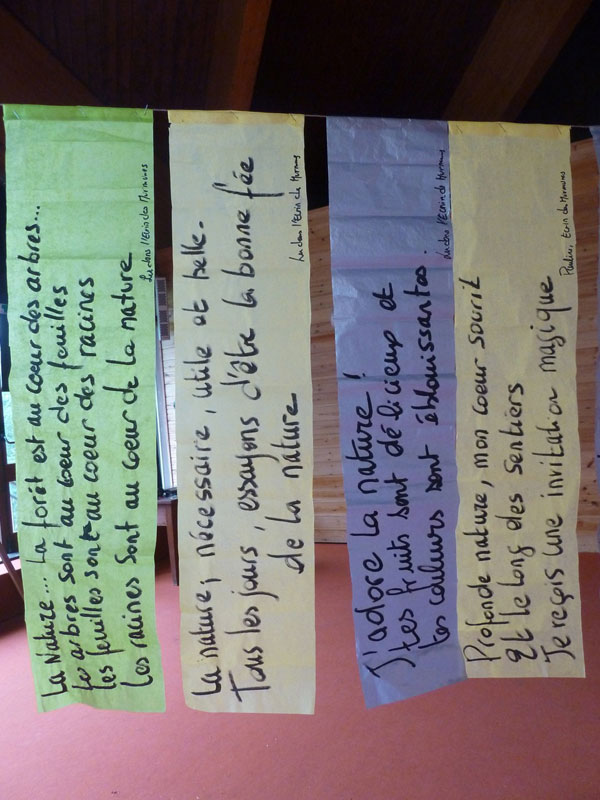 La Nature... La forêt est au coeur des arbres...
Les arbres sont au coeur des feuilles
Les feuilles sont au coeur des racines
Les racines sont au coeur de la nature
Lu dans l'Ecrin des Murmures
La nature, nécessaire, utile et belle.
Tous les jours, essayons d'être la bonne fée
de la nature
Lu dans l'Ecrin de Murmures
J'adore la nature !
tes fruits sont délicieux et
tes couleurs sont éblouissantes.
Lu dans l'Ecrin de Murmures
Profonde nature, mon coeur sourit
Et le long des sentiers
Je reçois une invitation magique
Pauline, Ecrin des Murmures